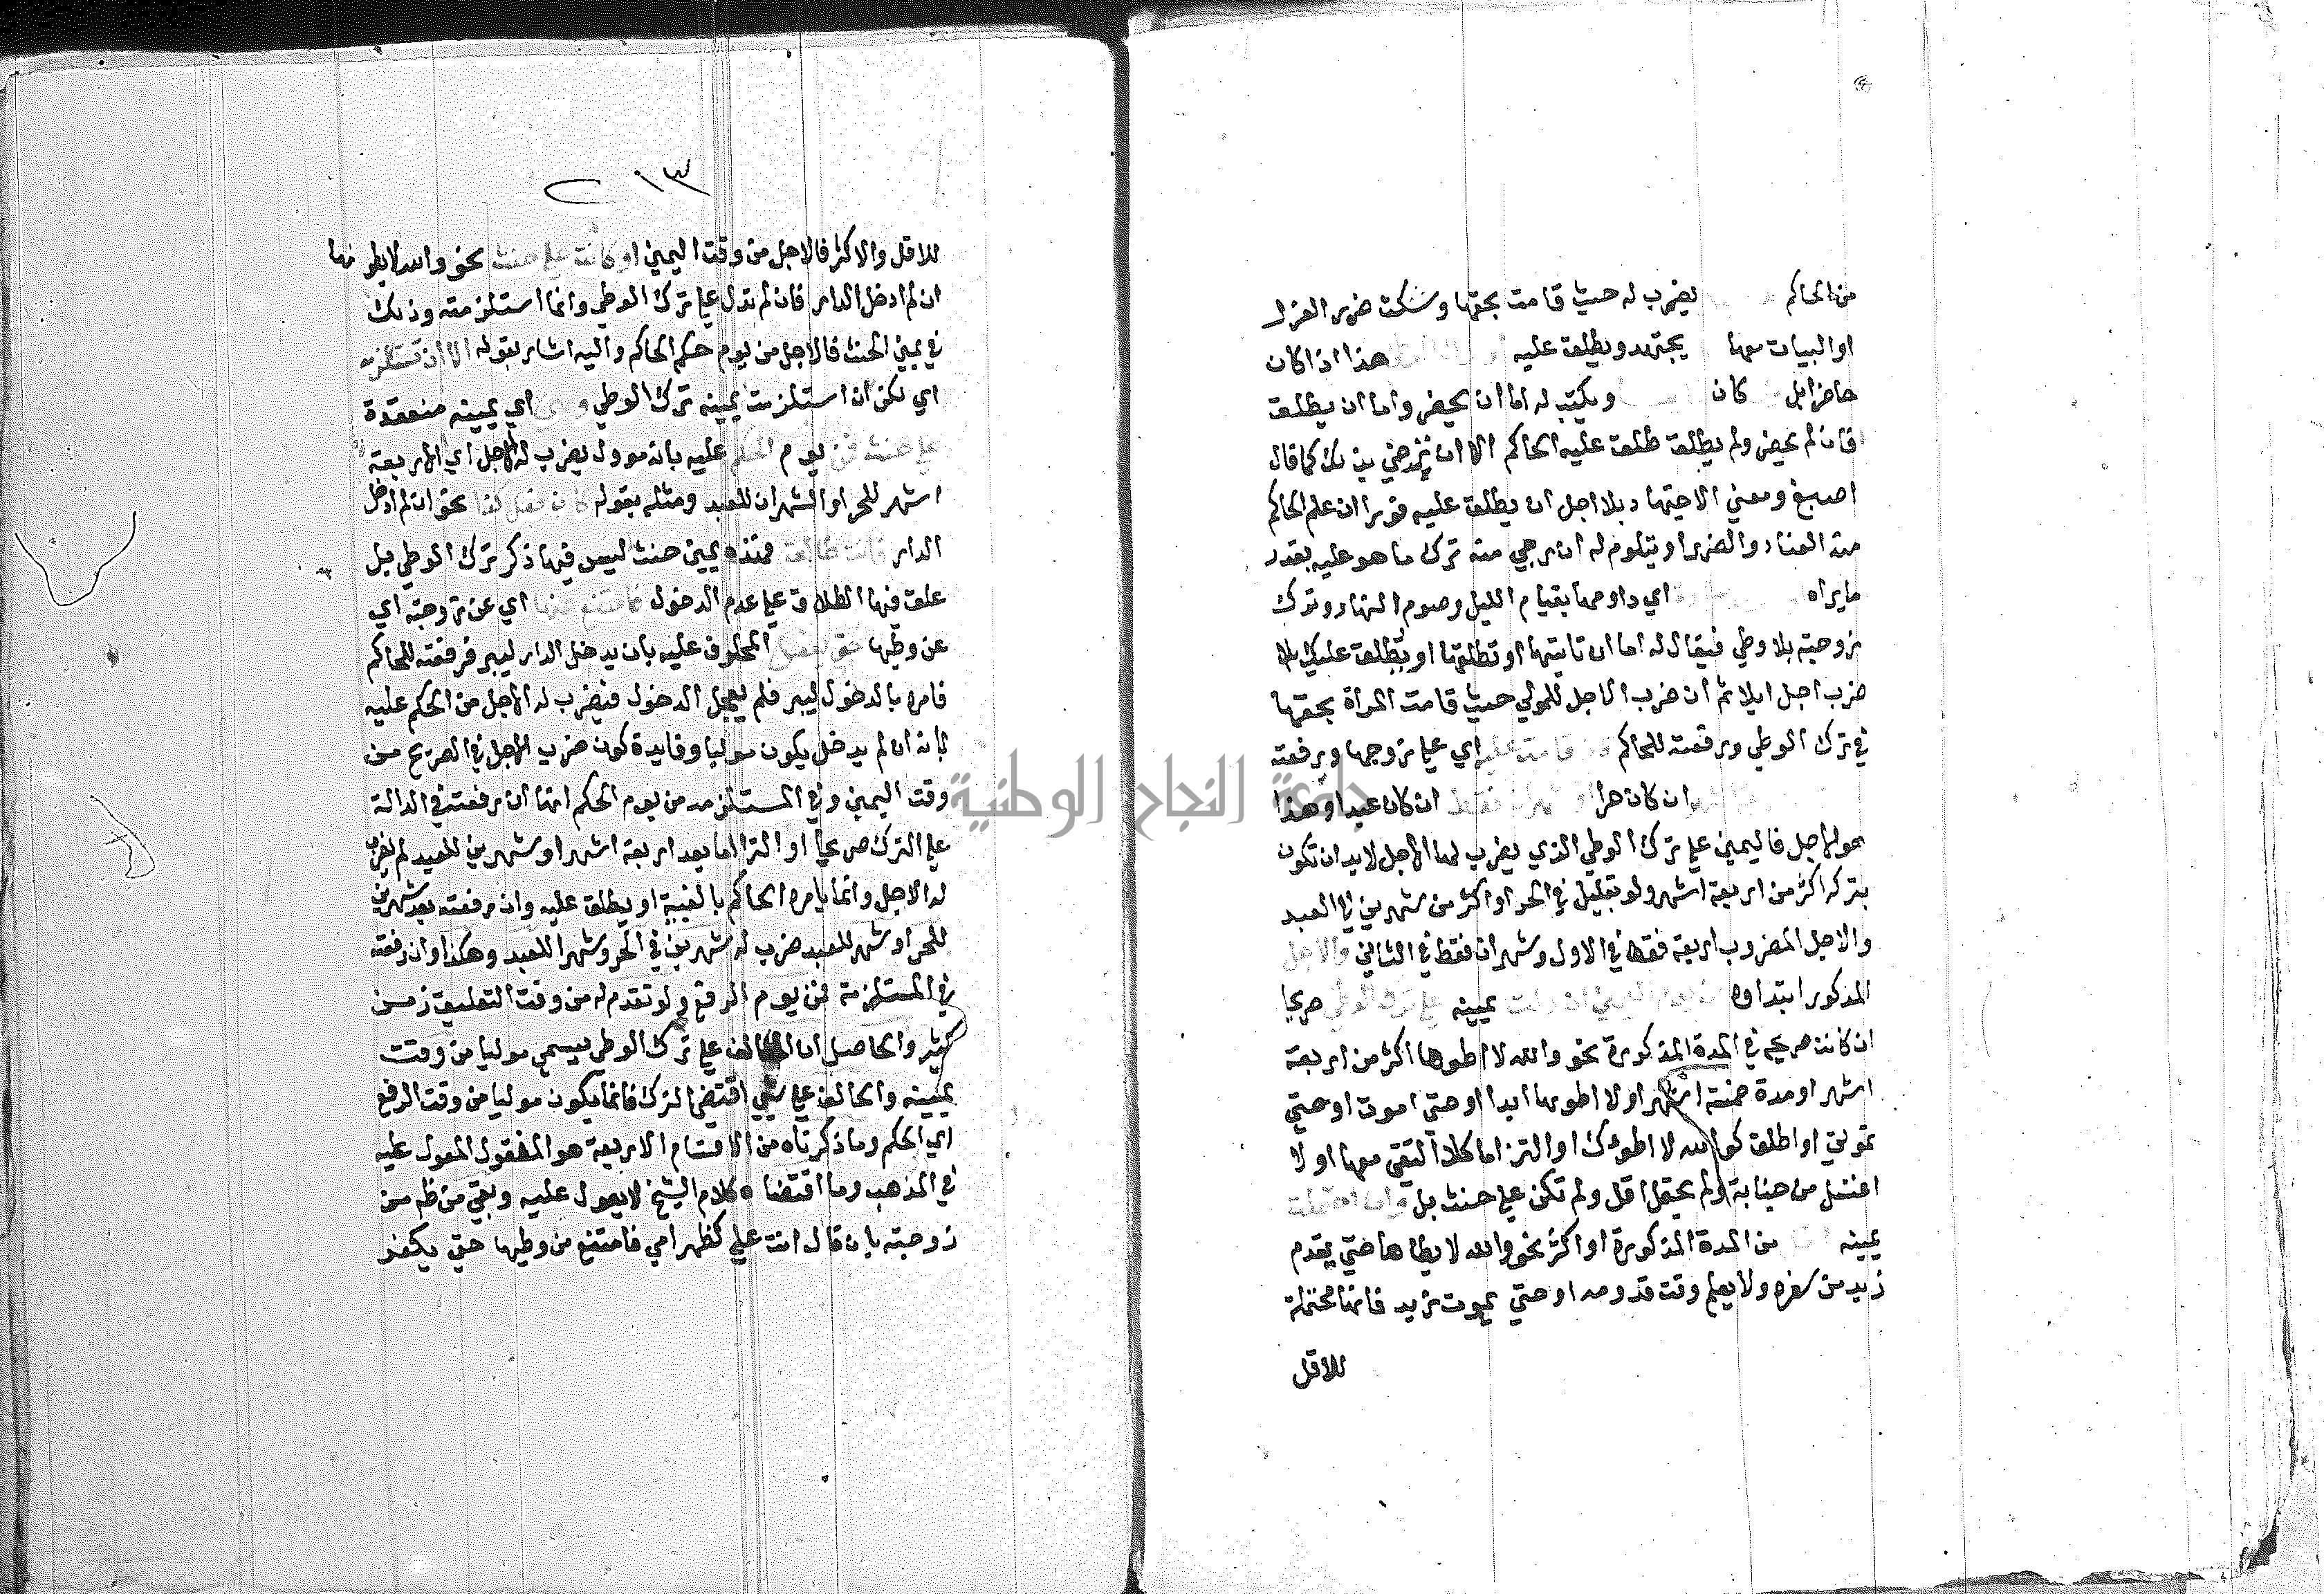 من الحاكم يضرب له حيث قامت بحقها وشكت ضرر العزل
او البيات معها يجتهد ويطلق عليه هذا اذا كان
حاضرا بل كان ويكتب له اما ان يحضر واما ان يطلق
فان لم يحضر ولم يطلق طلق عليه الحاكم الا ان ترضي بذلك كما قال
اصبغ ومعني الاجتهاد بلا اجل ان يطلق عليه فورا ان علم الحاكم
منه العناد والضرر او يتلوم له ان رجي منه ترك ما هو عليه بقدر
ما يراه اي داومها بقيام الليل وصوم النهار وترك
زوجته بلا وطي فيقال له اما ان تاتيها او تطلقها او يطلق عليك بلا
ضرب اجل ايلا ثم ان ضرب الاجل للمولي حيث قامت المراة بحقها
في ترك الوطي ورفعته للحاكم قامت عليه اي علي زوجها ورفعته
ان كان حرا ان كان عبدا وهذا
هو الاجل فاليمين علي ترك الوطي الذي يضرب لها الاجل لابد ان تكون
بتركه اكثر من اربعة اشهر ولو بقليل في الحر او اكثر من شهرين في العبد
والاجل المضروب اربعة فقط في الاول وشهران فقط في الثاني والاجل
المذكور ابتداوه من يوم اليمين ان دلت يمينه علي ترك الوطي صريحا
ان كانت صريحة في المدة المذكورة نحو والله لا اطوها اكثر من اربعة
اشهر او مدة خمسة اشهر او لا اطوها ابدا او حتي اموت او حتي
تموتي او اطلق كوالله لا اطؤك او التزاما كلا التقي معها او لا
اغتسل من جنابة ولم يحتمل اقل ولم تكن علي حنث بل وان احتملت
يمينه اقل من المدة المذكورة او اكثر نحو والله لا يطاها حتي يقدم
زيد من سفره ولا يعلم وقت قدومه او حتي يموت زيد فانها محتملة
للاقل
٢٠١٣
للاقل والاكثر فالاجل من وقت اليمين او كانت علي حنث نحو والله لا يطونها
ان لم ادخل الدار فان لم تدل علي ترك الوطي وانما استلزمته وذلك
في يمين الحنث فالاجل من يوم حكم الحاكم واليه اشار بقوله الا ان تستلزمه
اي لكن ان استلزمت يمينه ترك الوطي وهي اي يمينه منعقدة
علي حنث فمن يوم الحكم عليه بانه مول يضرب له الاجل اي الاربعة
اشهر للحر او الشهران للعبد ومثله بقوله كان فعل كذا نحو ان لم ادخل
الدار فانت طالق فهذه يمين حنث ليس فيها ذكر ترك الوطي بل
علق فيها الطلاق علي عدم الدخول فامتنع منها اي عن زوجته اي
عن وطيها حتي يفعل المحلوف عليه بان يدخل الدار ليبر فرفعته للحاكم
فامره بالدخول ليبر فلم يعجل الدخول فيضرب له الاجل من الحكم عليه
بانه ان لم يدخل يكون موليا وفايدة كون ضرب الاجل في الصريح من
وقت اليمين وفي المستلزمه من يوم الحكم انها ان رفعته في الدالة
علي الترك صريحا او التزاما بعد اربعة اشهر او شهرين للعبد لم يضرب
له الاجل وانما يامره الحاكم بالفيئة او يطلق عليه وان رفعته بعد شهرين
للحر او شهر للعبد ضرب له شهرين في الحر وشهرا للعبد وهكذا وان رفعته
في المستلزمة فمن يوم الرفع ولو تقدم له من وقت التعليق زمن
كثير والحاصل ان الحالف علي ترك الوطي يسمي موليا من وقت
يمينه والحالف علي شي اقتضي الترك فانما يكون موليا من وقت الرفع
اي الحكم وما ذكرناه من الاقسام الاربعة هو المنقول المعول عليه
في المذهب وما اقتضاه كلام الشيخ لا يعول عليه وبقي من ظهر من
زوجته بان قال انت علي كظهر امي فامتنع من وطيها حتي يكفر
جامعة النجاح الوطنية